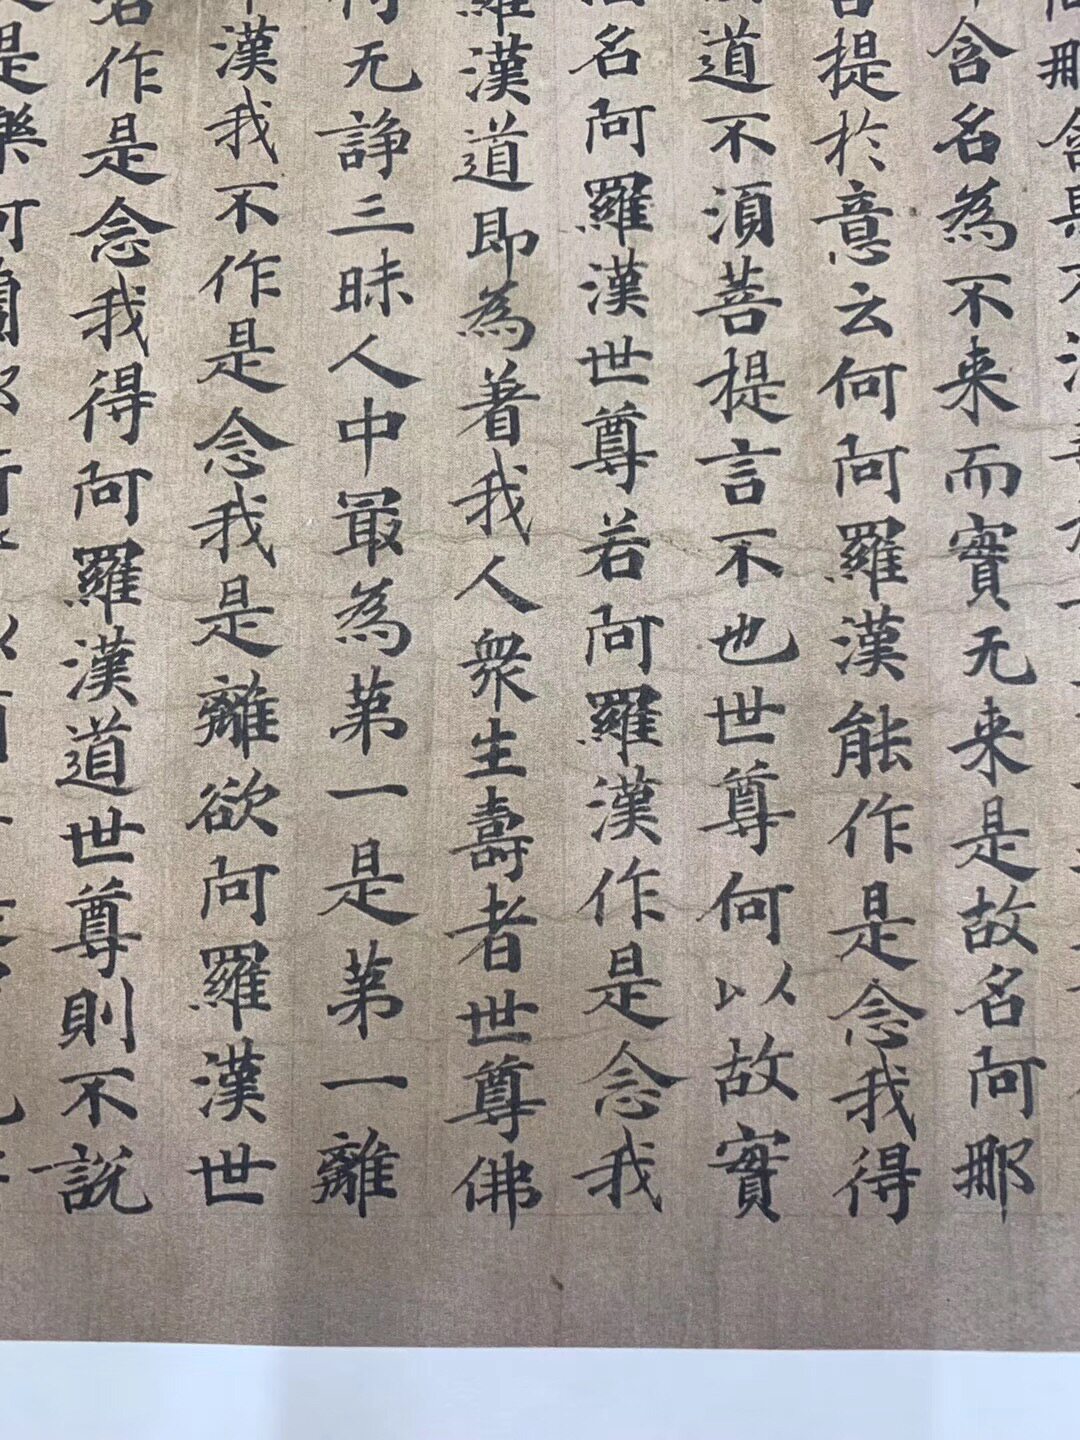 那含
含名為不来而實无来是故名阿那
提於意云何阿羅漢能作是念我得
道不湏菩提言不也世尊何以故實
名阿羅漢世尊若阿羅漢作是念我
羅漢道即為著我人衆生壽者世尊佛
无諍三昧人中最為苐一是苐一離
漢我不作是念我是離欲阿羅漢世
作是念我得阿羅漢道世尊則不說
是樂阿蘭那行